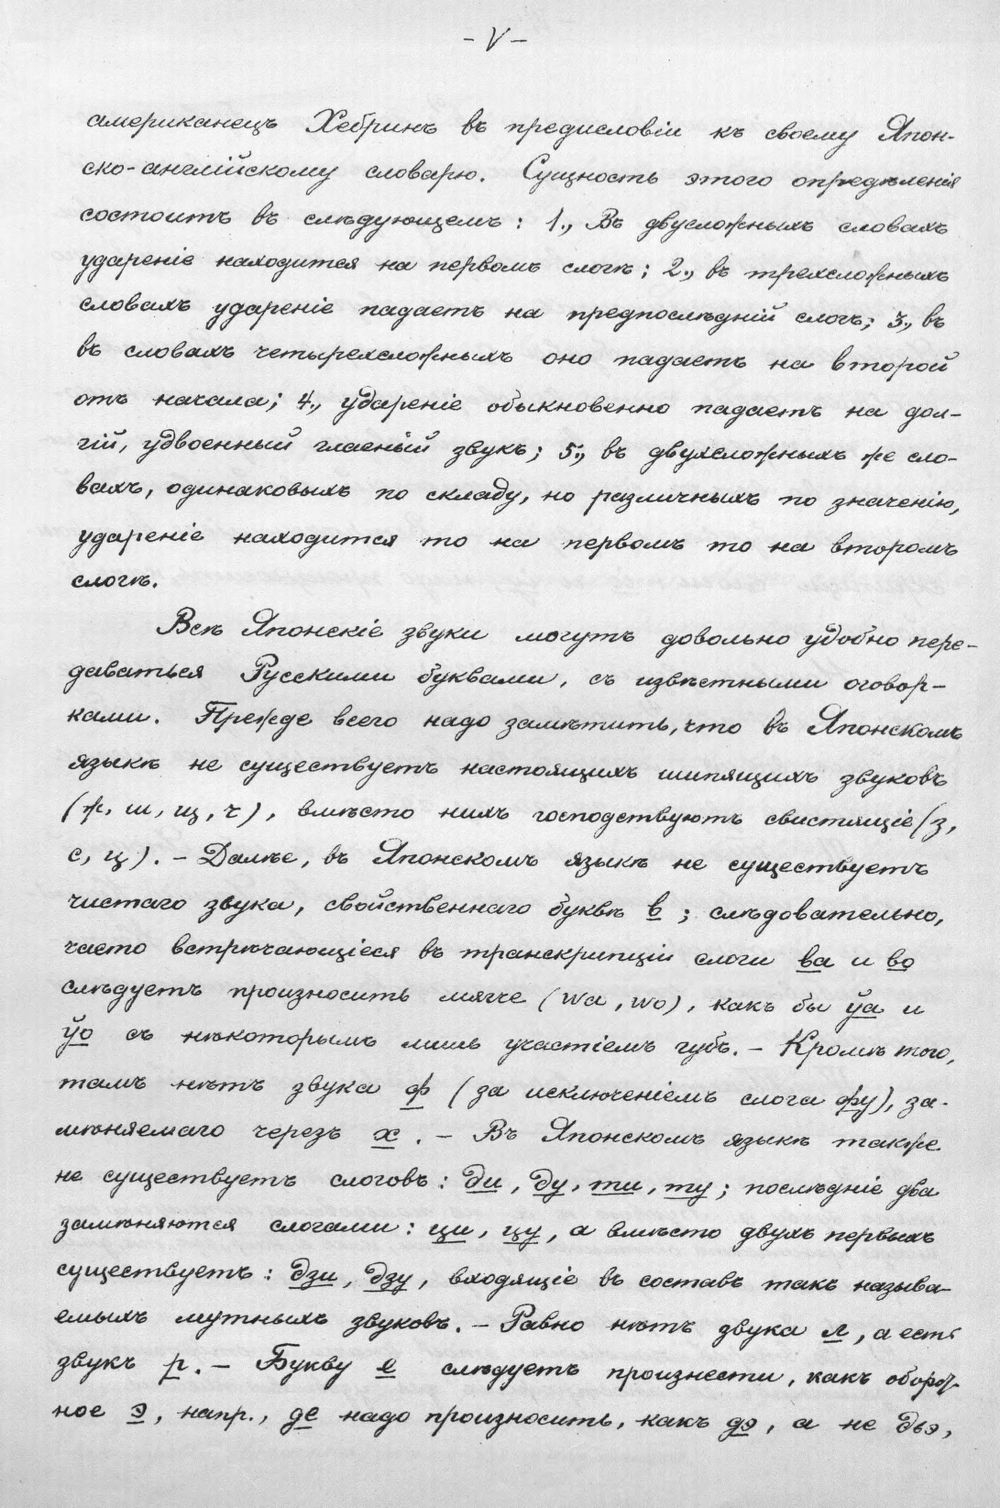 - V -
американецъ Хебринъ въ предисловіи къ своему Япон-
ско-англійскому словарю. Сущность этого опредѣленія
состоитъ въ слѣдующемъ: 1., Въ двусложныхъ словахъ
удареніе находится на первомъ слогѣ; 2., въ трехсложныхъ
словахъ удареніе падаетъ на предпослѣдній слогъ; 3., въ
въ словахъ четырехсложныхъ оно падаетъ на второй
отъ начала; 4., удареніе обыкновенно падаетъ на дол-
гій, удвоенный гласный звукъ; 5., въ двухсложныхъ же сло-
вахъ, одинаковыхъ по складу, но различныхъ по значенію,
удареніе находится то на первомъ то на второмъ
слогѣ.
Всѣ Японскіе звуки могутъ довольно удобно пере-
даваться Русскими буквами, съ извѣстными оговор-
ками. Прежде всего надо замѣтить, что въ Японскомъ
языкѣ не существуетъ настоящихъ шипящихъ звуковъ
(ж, ш, щ, ч), вмѣсто нихъ господствуютъ свистящіе (з,
с, ц). - Далѣе, въ Японскомъ языкѣ не существуетъ
чистаго звука, свойственнаго буквѣ в; слѣдовательно,
часто встрѣчающіеся въ транскрипціи слоги ва и во
слѣдуетъ произносить мягче (wa, wo), какъ бы ўа и
ўо съ нѣкоторымъ лишь участіемъ губъ. - Кромѣ того,
тамъ нѣтъ звука ф (за исключеніемъ слога фу), за-
мѣняемаго черезъ х. - Въ Японскомъ языкѣ также
не существуетъ слоговъ: ди, ду, ти, ту; послѣдніе два
замѣняются слогами: ци, цу, а вмѣсто двухъ первыхъ
существуетъ: дзи, дзу, входящіе въ составъ такъ называ-
емыхъ мутныхъ звуковъ. - Равно нѣтъ звука л, а есть
звукъ р. - Букву е слѣдуетъ произнести, какъ оборот-
ное э, напр., де надо произносить, какъ дэ, а не дьэ,